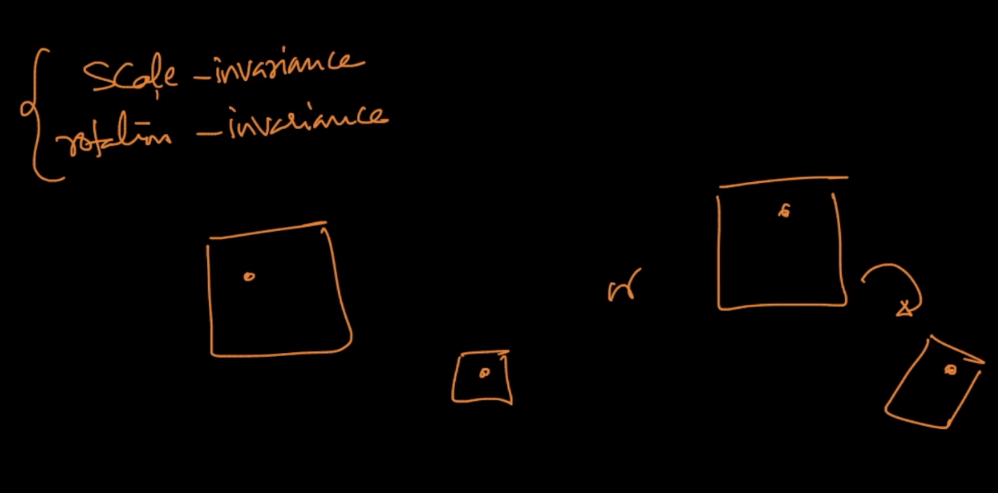 Scale - invariance
rotation - invariance
or